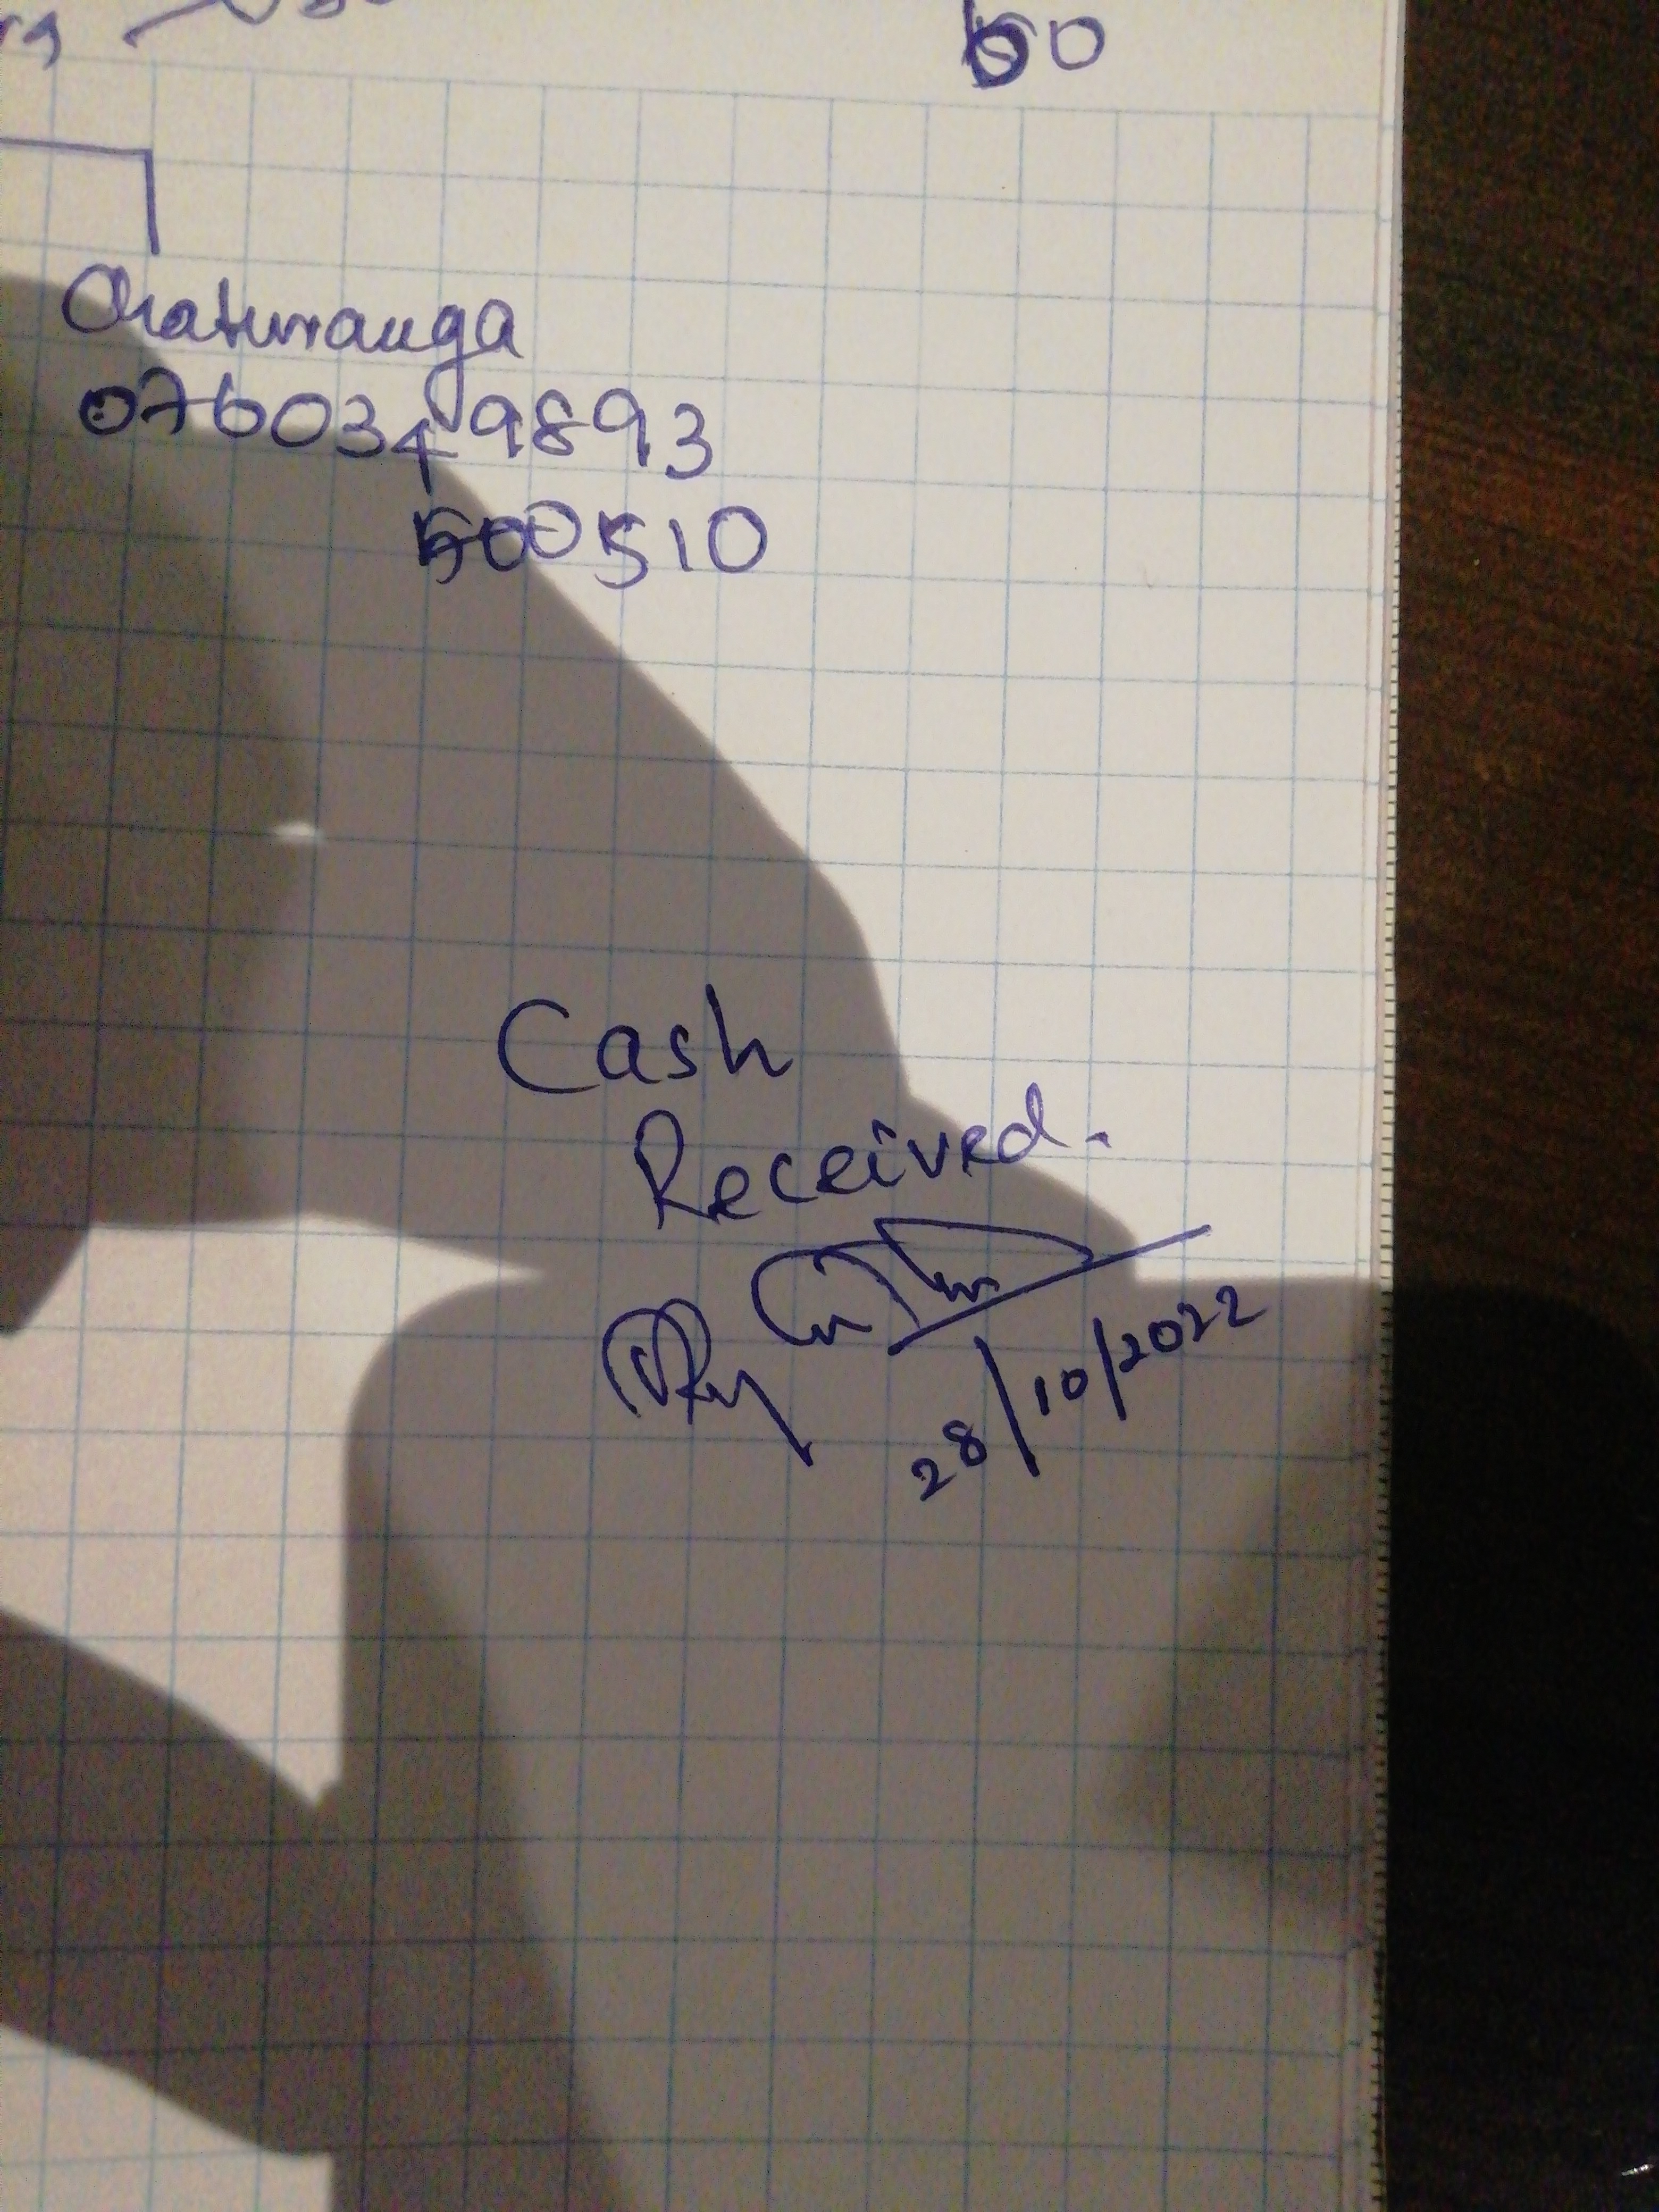 60
Chaturanga
0760349893
500510
Cash
Received.
28/10/2022